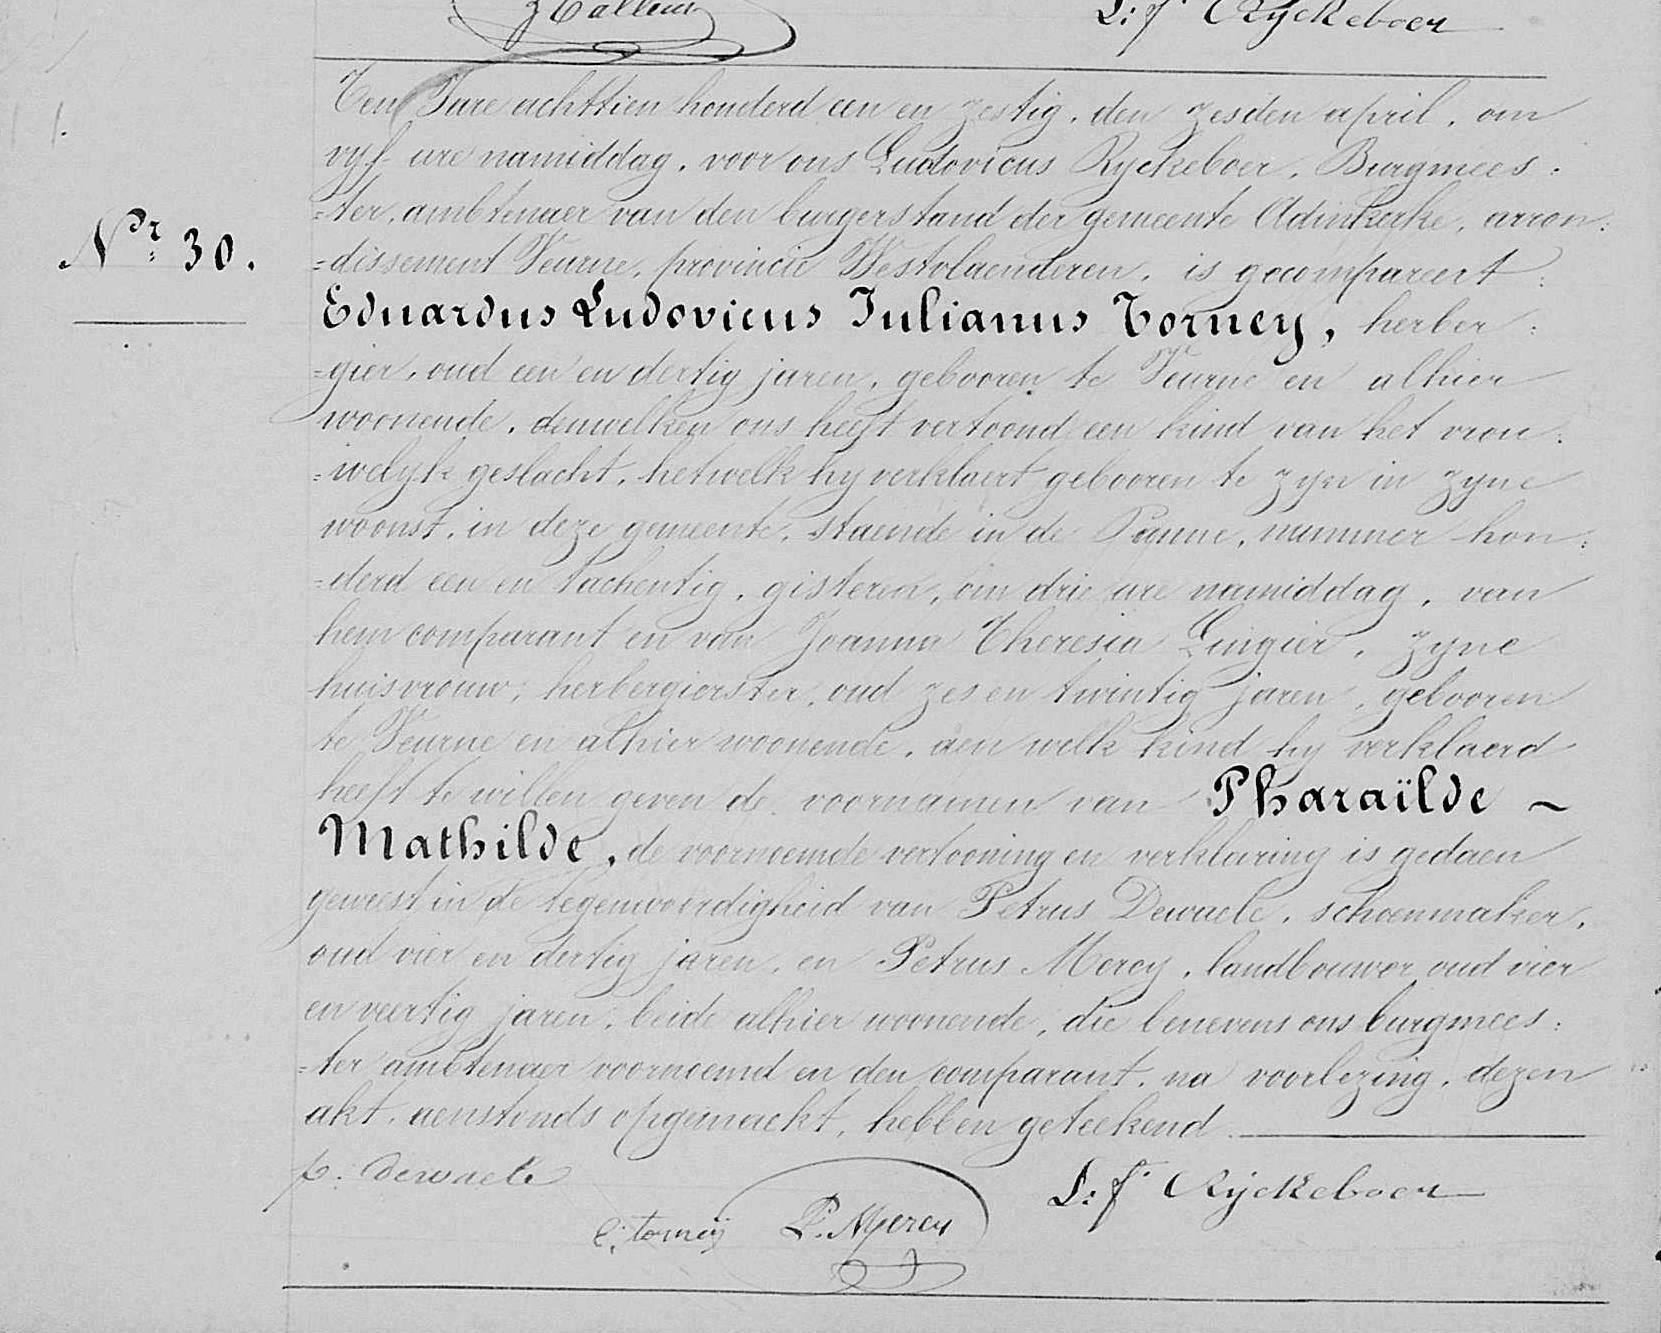 L: f. Ryckeboer
Ten Jare achttien honderd een en zestig, den zesden april, om
vyf ure namiddag, voor ons Ludovicus Ryckeboer, Burgmees:
=ter, ambtenaer van den burgerstand der gemeente Adinkerke, arron:
Nr. 30.
=dissement Veurne, provincie Westvlaenderen, is gecompareert:
Eduardus Ludovicus Julianus Torney, herber:
=gier, oud een en dertig jaren, gebooren te Veurne en alhier
woonende, denwelken ons heeft vertoond een kind van het vrou:
=welyk geslacht, hetwelk hy verklaert gebooren te zyn in zyne
woonst, in deze gemeente, staende in de Panne, nummer hon:
=derd een en tachentig, gisteren, om drie ure namiddag, van
hem comparant en van Joanna Theresia Lingier, zyne
huisvrouw, herbergierster, oud zes en twintig jaren, gebooren
te Veurne en alhier woonende, aen welk kind hy verklaerd
heeft te willen geven de voornamen van Pharaïlde ~
Mathilde, de voornoemde vertooning en verklaring is gedaen
geweest in de tegenwoordigheid van Petrus Dewaele, schoenmaker,
oud vier en dertig jaren, en Petrus Mercy, landbouwer oud vier
en veertig jaren, beide alhier woonende, die benevens ons burgmees:
=ter ambtenaer voornoemd en den comparant, na voorlezing, dezen
akt, aenstonds opgemaekt, hebben geteekend.
p: dewaele
L: f. Ryckeboer
E: torneÿ P. Mercy